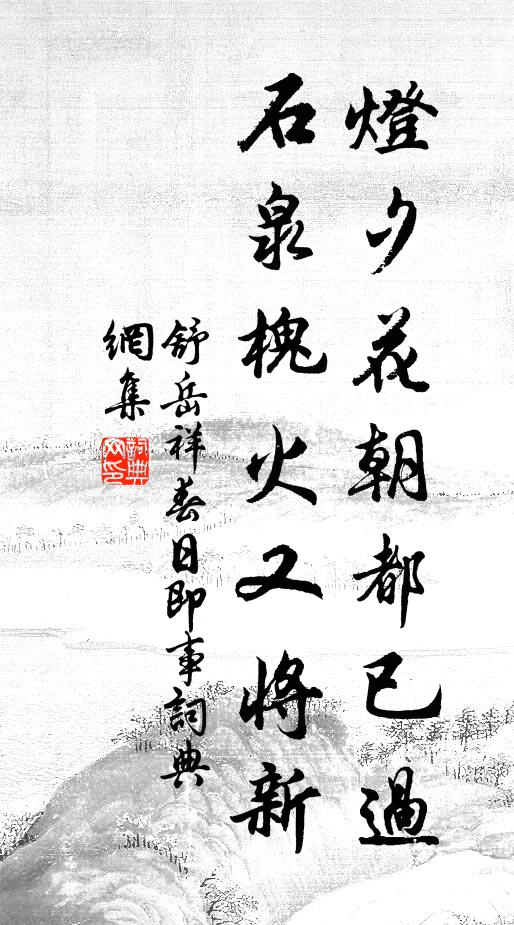 燈夕花朝都已過
石泉槐火又將新
舒岳祥春日即事詞典
網集
詞典网印